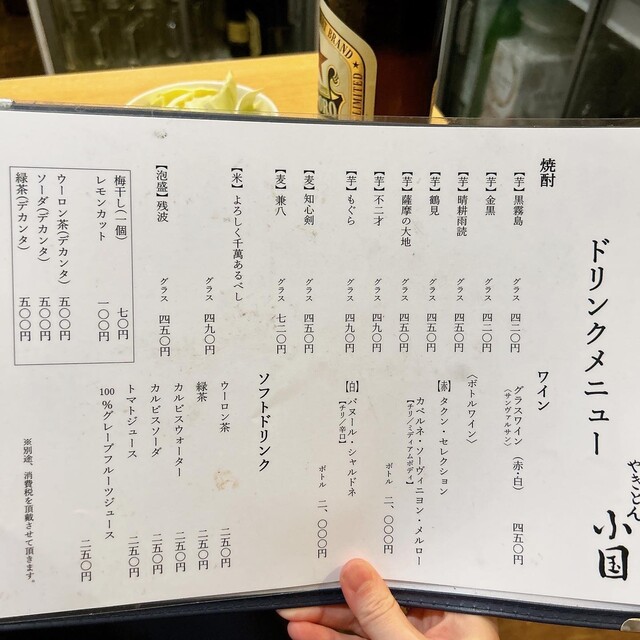 BRAND
LIMITED
ドリンクメニュー
やきとん
小国
焼酎
【芋】黒霧島 グラス 四二〇円
【芋】金黒 グラス 四二〇円
【芋】晴耕雨読 グラス 四五〇円
【芋】鶴見 グラス 四五〇円
【芋】薩摩の大地 グラス 四五〇円
【芋】不二才 グラス 四九〇円
【芋】もぐら グラス 四九〇円
【麦】知心剣 グラス 四五〇円
【麦】兼八 グラス 七二〇円
【米】よろしく千萬あるべし
グラス 四九〇円
【泡盛】残波 グラス 四五〇円
梅干し(一個) 七〇円
レモンカット 一〇〇円
ウーロン茶(デカンタ) 五〇〇円
ソーダ(デカンタ) 五〇〇円
緑茶(デカンタ) 五〇〇円
ワイン
グラスワイン(赤・白) 四五〇円
(サンヴァルサン)
〈ボトルワイン〉
【赤】タクン・セレクション
カベルネ・ソーヴィニヨン・メルロー
【チリ/ミディアムボディ】
ボトル 二、〇〇〇円
【白】バヌール・シャルドネ
【チリ/辛口】
ボトル 二、〇〇〇円
ソフトドリンク
ウーロン茶 二五〇円
緑茶 二五〇円
カルピスウォーター 二五〇円
カルピスソーダ 二五〇円
トマトジュース 二五〇円
100%グレープフルーツジュース
二五〇円
※別途、消費税を頂戴させて頂きます。